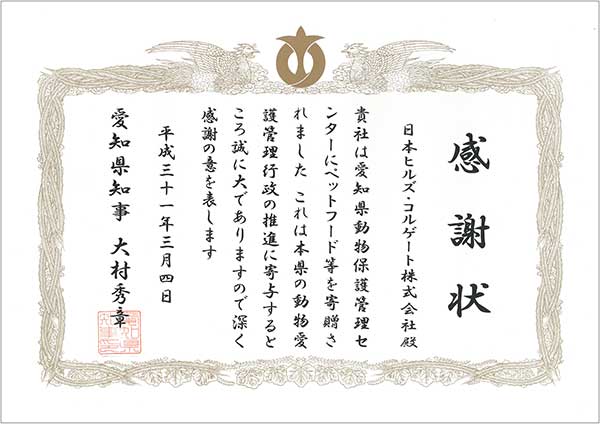 感謝状
日本ヒルズ・コルゲート株式会社殿
貴社は愛知県動物保護管理セ
ンターにペットフード等を寄贈さ
れました これは本県の動物愛
護管理行政の推進に寄与すると
ころ誠に大でありますので深く
感謝の意を表します
平成三十一年三月四日
愛知県知事 大村秀章